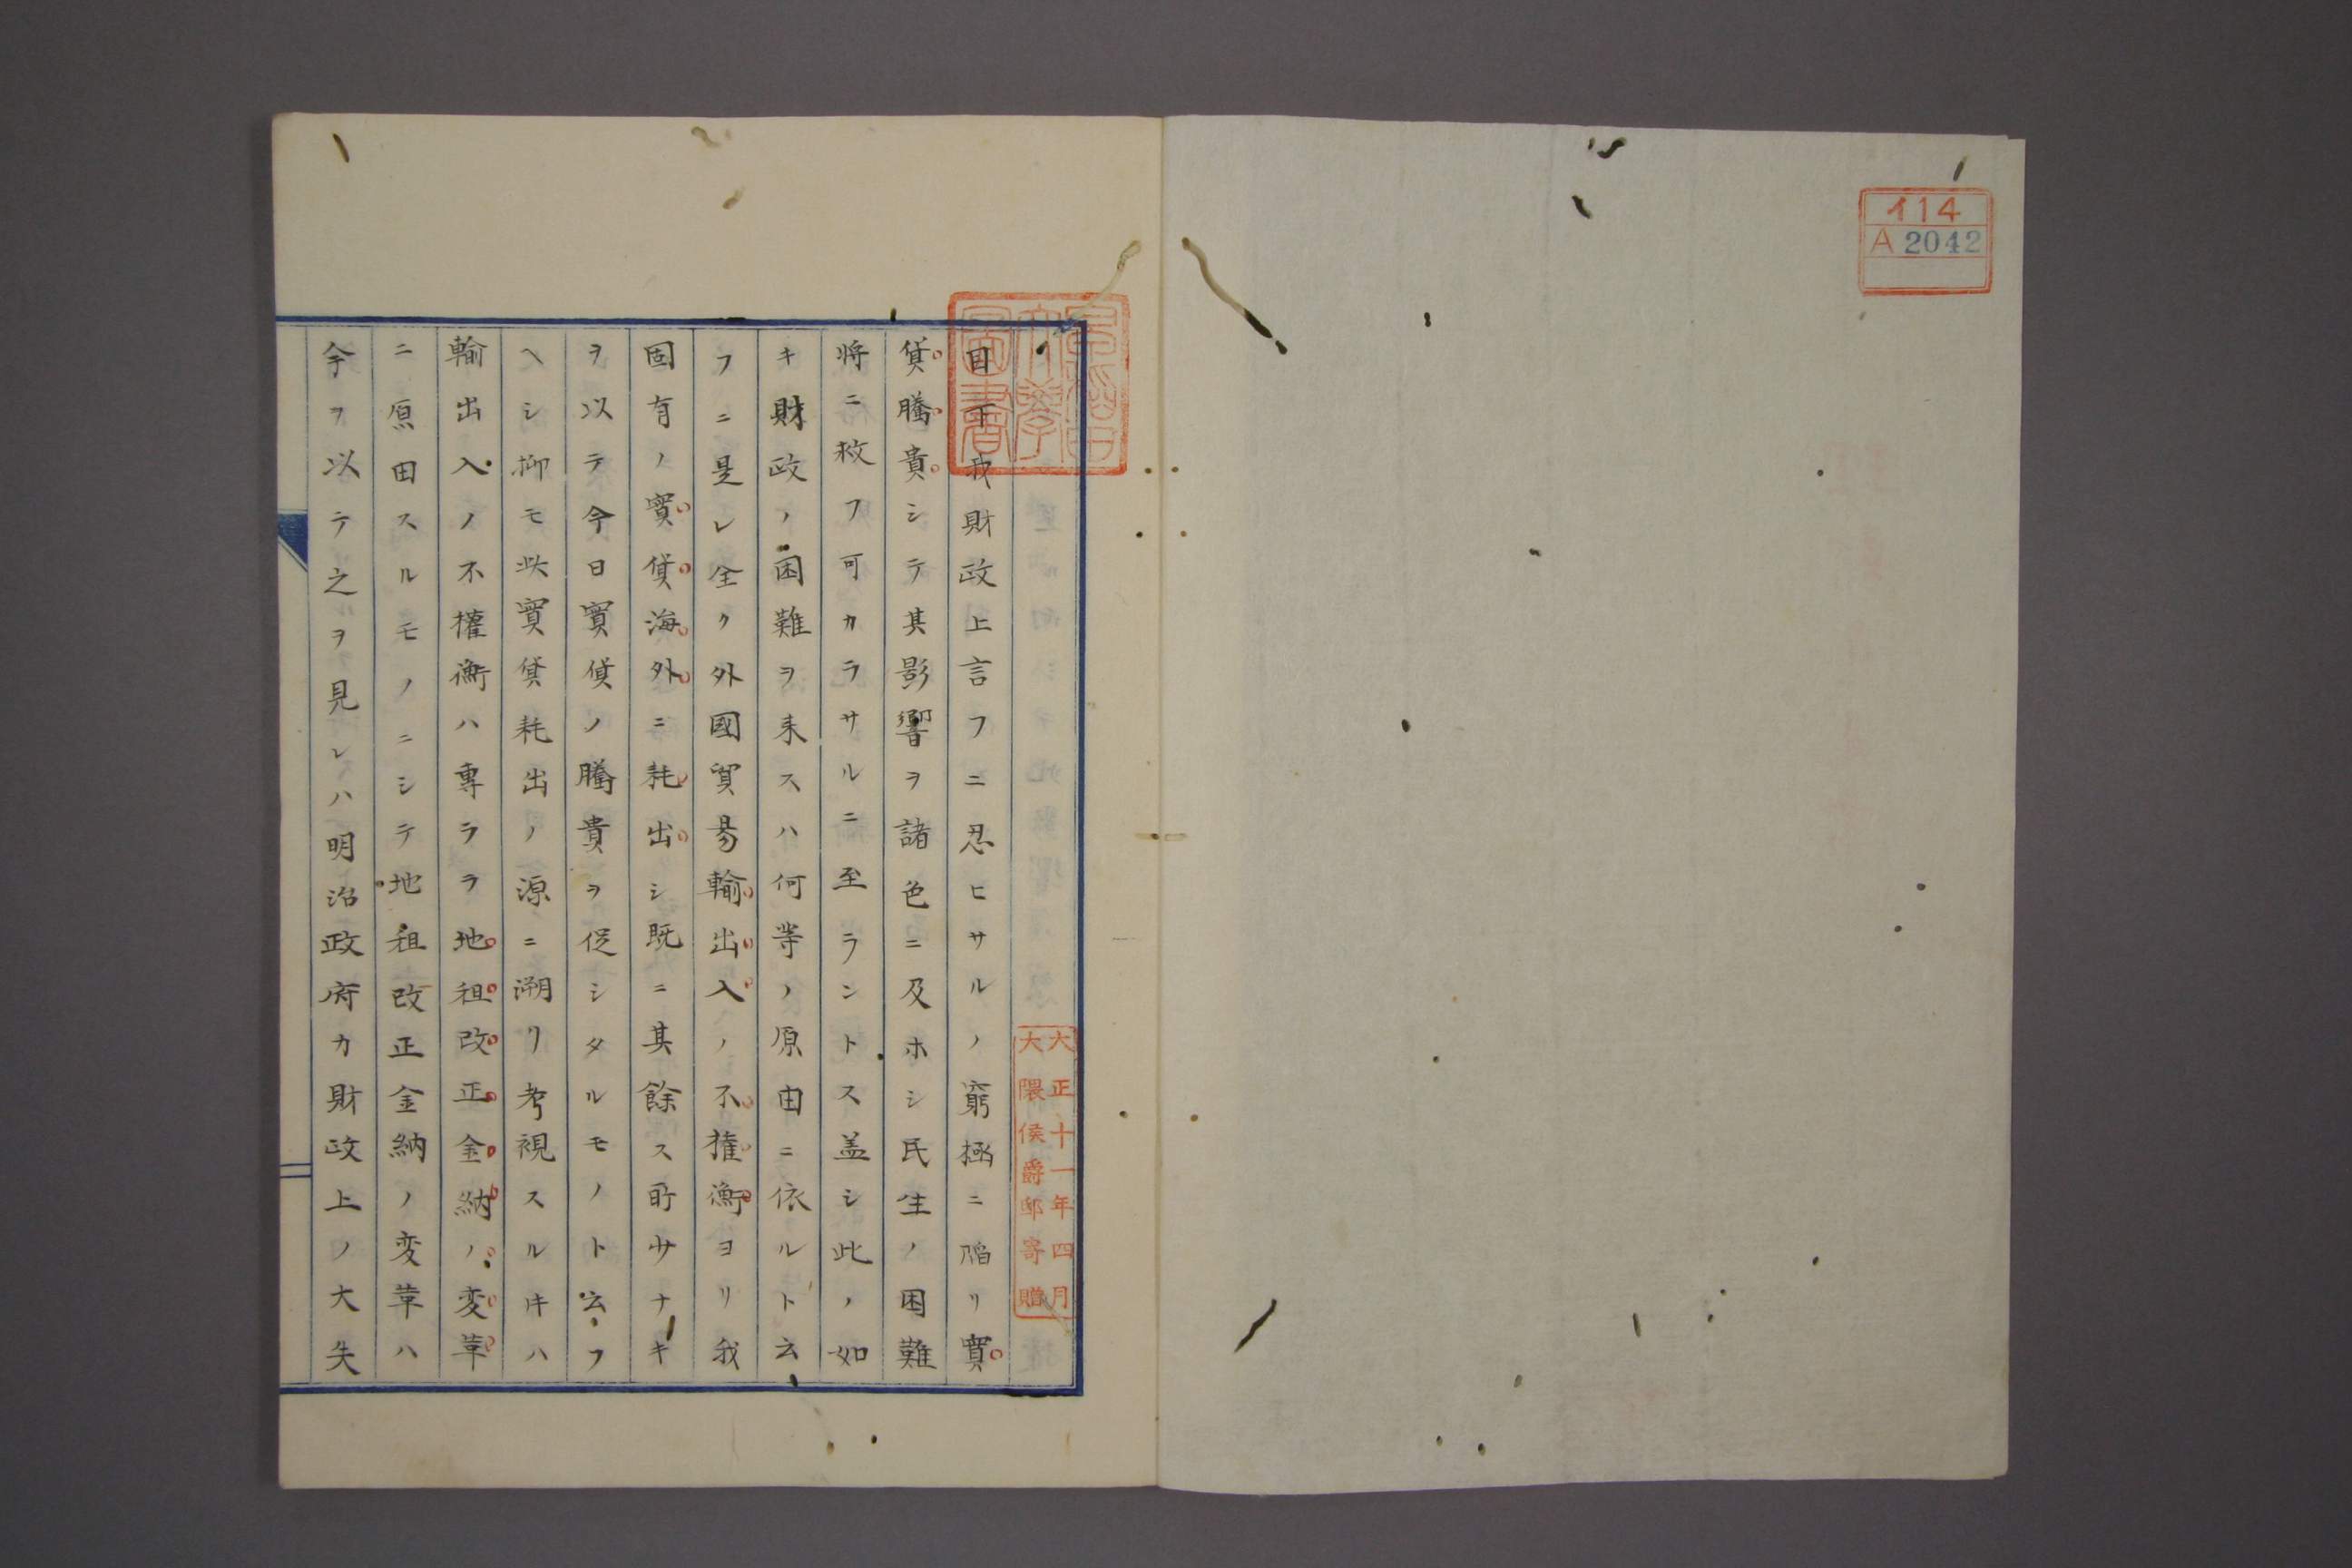 イ14
A 2042
早稲田
大學
圖書
大正十一年四月
大隈侯爵邸寄贈
目下我財政上言フニ忍ヒサルノ窮極ニ陷リ實
貨騰貴シテ其影響ヲ諸色ニ及ホシ民生ノ困難
将ニ救フ可カラサルニ至ラントス盖シ此ノ如
キ財政ノ困難ヲ来スハ何等ノ原由ニ依ルト云
フニ是レ全ク外國貿昜輸出入ノ不權衡ヨリ我
固有ノ實貨海外ニ耗出シ既ニ其餘ス所少ナキ
ヲ以テ今日實貨ノ騰貴ヲ促シタルモノト云フ
ヘシ抑モ此實貨耗出ノ源ニ溯リ考視スルキハ
輸出入ノ不權衡ハ專ラヲ地租改正金納ノ変革
ニ原因スルモノニシテ地租改正金納ノ変革ハ
今ヲ以テ之ヲ見レハ明治政府カ財政上ノ大失